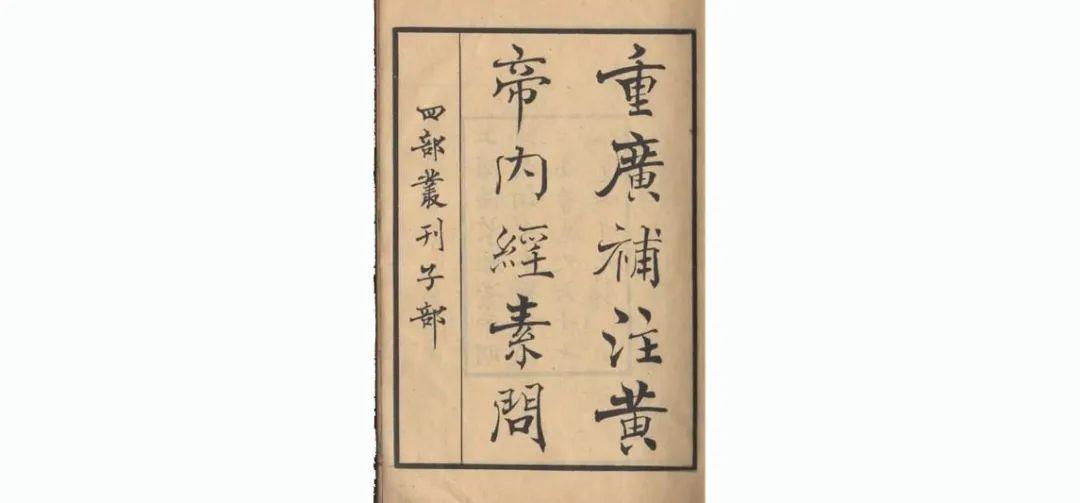 重廣補注黄
帝内經素問
四部叢刊子部